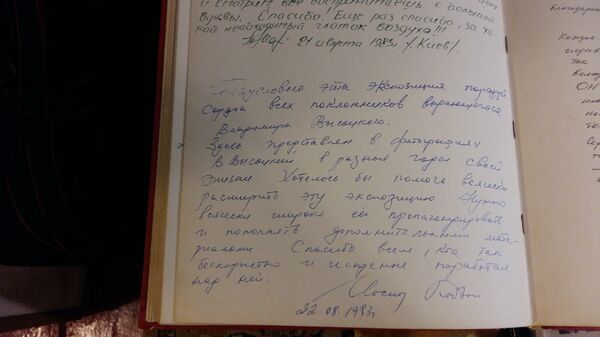 и смотрим все воспринимаешь с большой
буквы. Спасибо! Еще раз спасибо за та-
кой необходимый глоток воздуха!!!
21 августа 1983г. г. Киев
Безусловно эта экспозиция порадует
сердца всех поклонников выдающегося
Владимира Высоцкого.
Здесь представлен в фотографиях
В Высоцкий в разные годы своей
жизни. Хотелось бы помочь всячески
расширить эту экспозицию. Нужно
всячески широко ее пропагандировать
и пополнять дополнительными мате-
риалами. Спасибо всем, кто так
бескорыстно и искренне поработал
над ней.
Иосиф Кобзон
22.08.1983г.
благодарно
Каждое
так
ОН
на
те